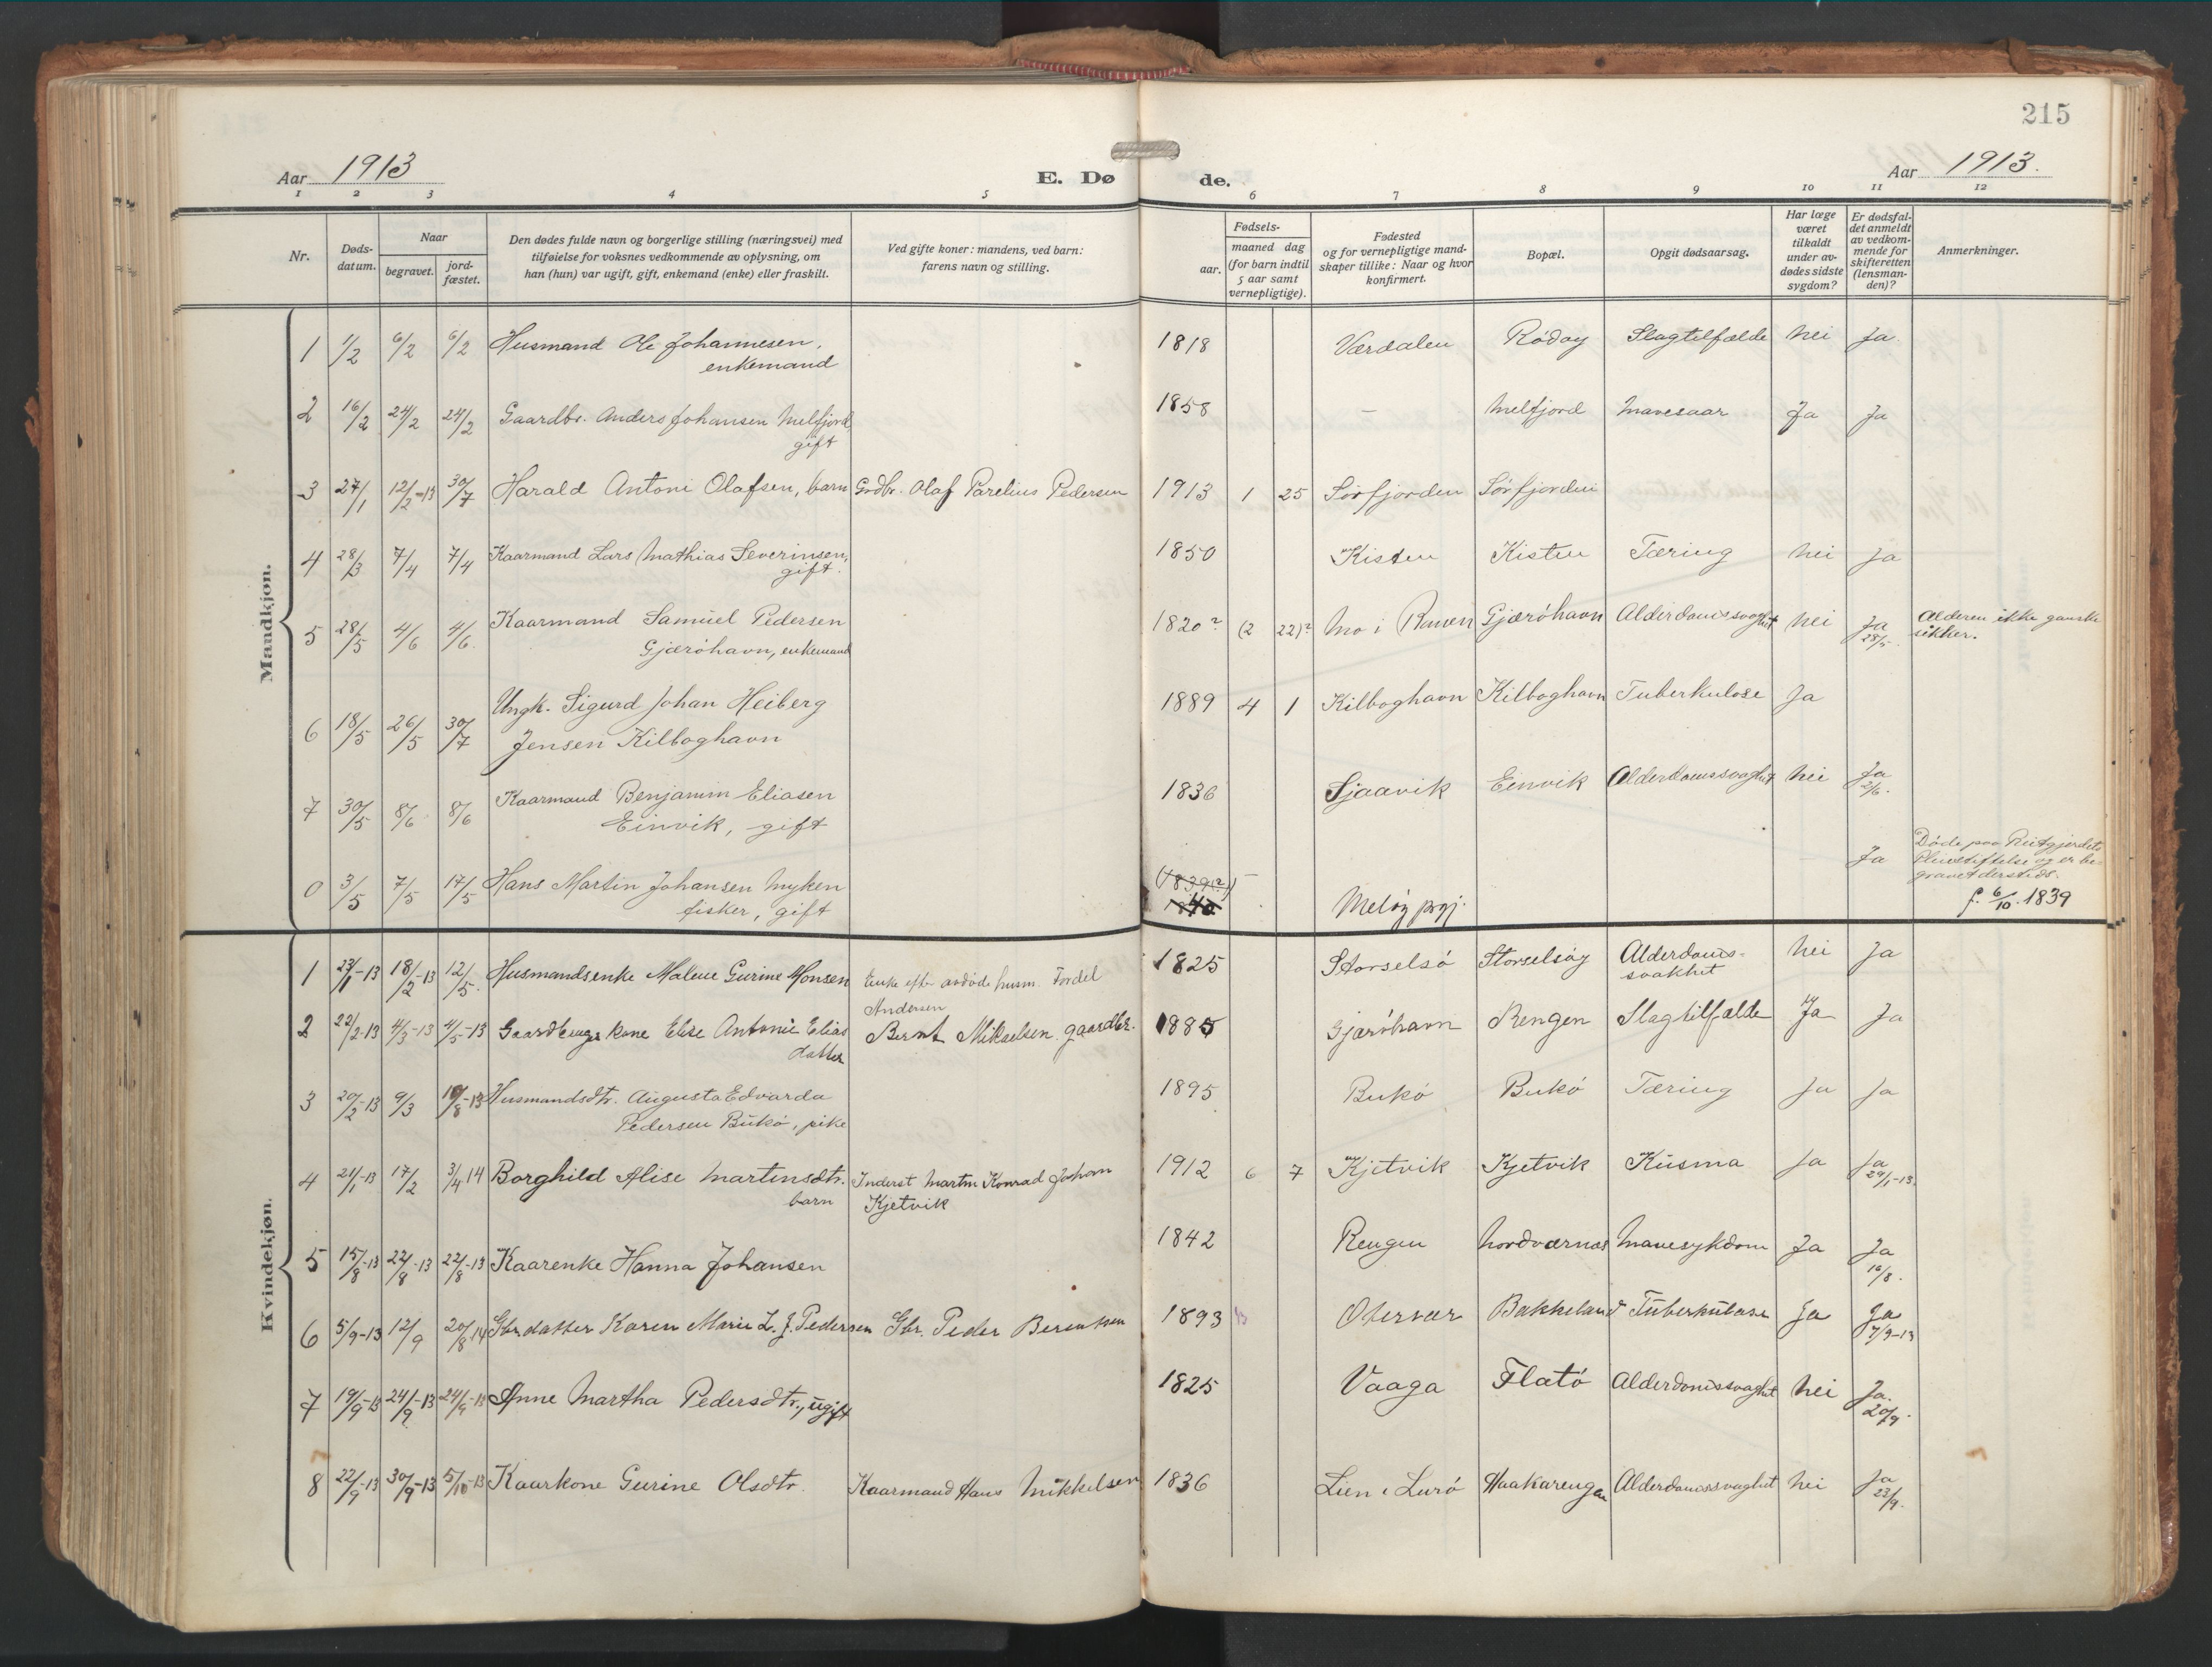 215
Aar 1913 E. Dø de. Aar 1913.
1 2 3 4 5 6 7 8 9 10 11 12
Nr. Døds-datum. Naar begravet. jord-fæstet. Den dødes fulde navn og borgerlige stilling (næringsvei) med tilføielse for voksnes vedkommende av oplysning, om han (hun) var ugift, gift, enkemand (enke) eller fraskilt. Ved gifte koner: mandens, ved barn: farens navn og stilling. Fødsels- aar. maaned dag (for barn indtil 5 aar samt vernepligtige). Fødested og for vernepligtige mand-skaper tillike: Naar og hvor konfirmert. Bopæl. Opgit dødsaarsag. Har læge været tilkaldt under av-dødes sidste sygdom? Er dødsfal-det anmeldt av vedkom-mende for skifteretten (lensman-den)? Anmerkninger.
Mandkjøn.
1 1/2 6/2 6/2 Husmand Ole Johannesen, 1818 Værdalen Rødøy Slagtilfælde nei Ja.
enkemand
2 16/2 24/2 24/2 Gaardbr. Anders Johansen Melfjord 1858 – Melfjord Mavesaar Ja Ja
gift
3 27/1 12/2-13 30/7 Harald Antoni Olafsen, barn Grdbr. Olaf Parelius Pedersen 1913 1 25 Sørfjorden Sørfjorden
4 28/3 7/4 7/4 Kaarmand Lars Mathias Severinsen, 1850 Kisten Kisten Tæring nei Ja
gift.
5 28/5 4/6 4/6. Kaarmand Samuel Pedersen 1820? (2 22)? Mo i Ranen Gjærøhavn Alderdomssvaghet nei Ja 28/5. Alderen ikke ganske
Gjærøhavn, enkemand sikker.
6 18/5 26/5 30/7 Ungk. Sigurd Johan Heiberg 1889 4 1 Kilboghavn Kilboghavn Tuberkulose Ja
Jensen Kilboghavn
7 30/5 8/6 8/6 Kaarmand Benjamin Eliasen 1836 Sjaavik Einvik Alderdomssvaghet nei Ja 2/6.
Einvik, gift
0 3/5 7/5 17/5 Hans Martin Johansen Myken (1839(?)) – Ja Døde paa Reitgjerdets
fisker, gift Meløy prgj. Pleiestiftelse og er be-
gravet dersteds.
f. 6/10. 1839
Kvindekjøn.
1 23/1-13 18/2-13 12/5. Husmandsenke Malene Gurine Monsen Enke efter avdøde husm. Fordel 1825 Storselsø Storselsøy Alderdoms- nei Ja
Andersen svakhet
2 22/2-13 4/3-13 4/5-13 Gaardbruger kone Elise Antonie Elias Bernt Mikaelsen gaardbr. 1885 Gjærøhavn Rengen Slagtilfælde Ja Ja
datter
3 20/2-13 9/3 10/8-13 Husmandsdtr. Augusta Edvarda 1895 Bukø Bukø Tæring Ja Ja
Pedersen Bukø, pike
4 21/1-13 17/2 3/4 14 Borghild Alise Martinsdtr. Inderst Martin Konrad Johan 1912 6 7 Kjetvik Kjetvik Kusma Ja Ja 29/1-13.
barn Kjetvik
5 15/8-13 22/8-13 22/8-13 Kaarenke Hanna Johansen 1842 Rengen Nordværnes Mavesykdom Ja Ja 16/8.
6 5/9-13 12/9 20/8 14 Gbr.datter Karen Marie L. J. Pedersen Gbr. Peder Berentsen 1893 Otervær Bakkeland Tuberkulose Ja Ja 7/9-13
7 19/9-13 24/9-13 24/9-13 Anne Martha Pedersdtr., ugift 1825 Vaaga Flatø Alderdomssvaghet nei Ja. 20/9.
8 22/9-13 30/9-13 5/10-13 Kaarkone Gurine Olsdtr. Kaarmand Hans Mikkelsen 1836 Lien i Lurø Haakarengen Alderdomssvaghet nei Ja 23/9.